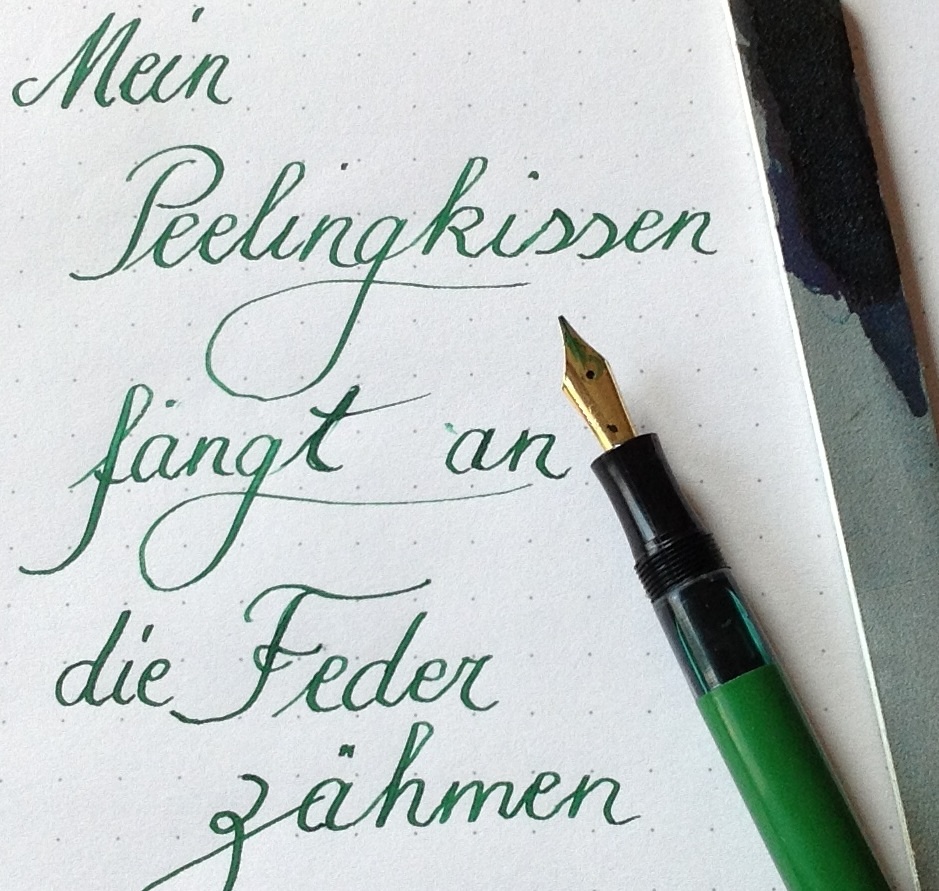 Mein
Peelingkissen
fängt an
die Feder
zähmen